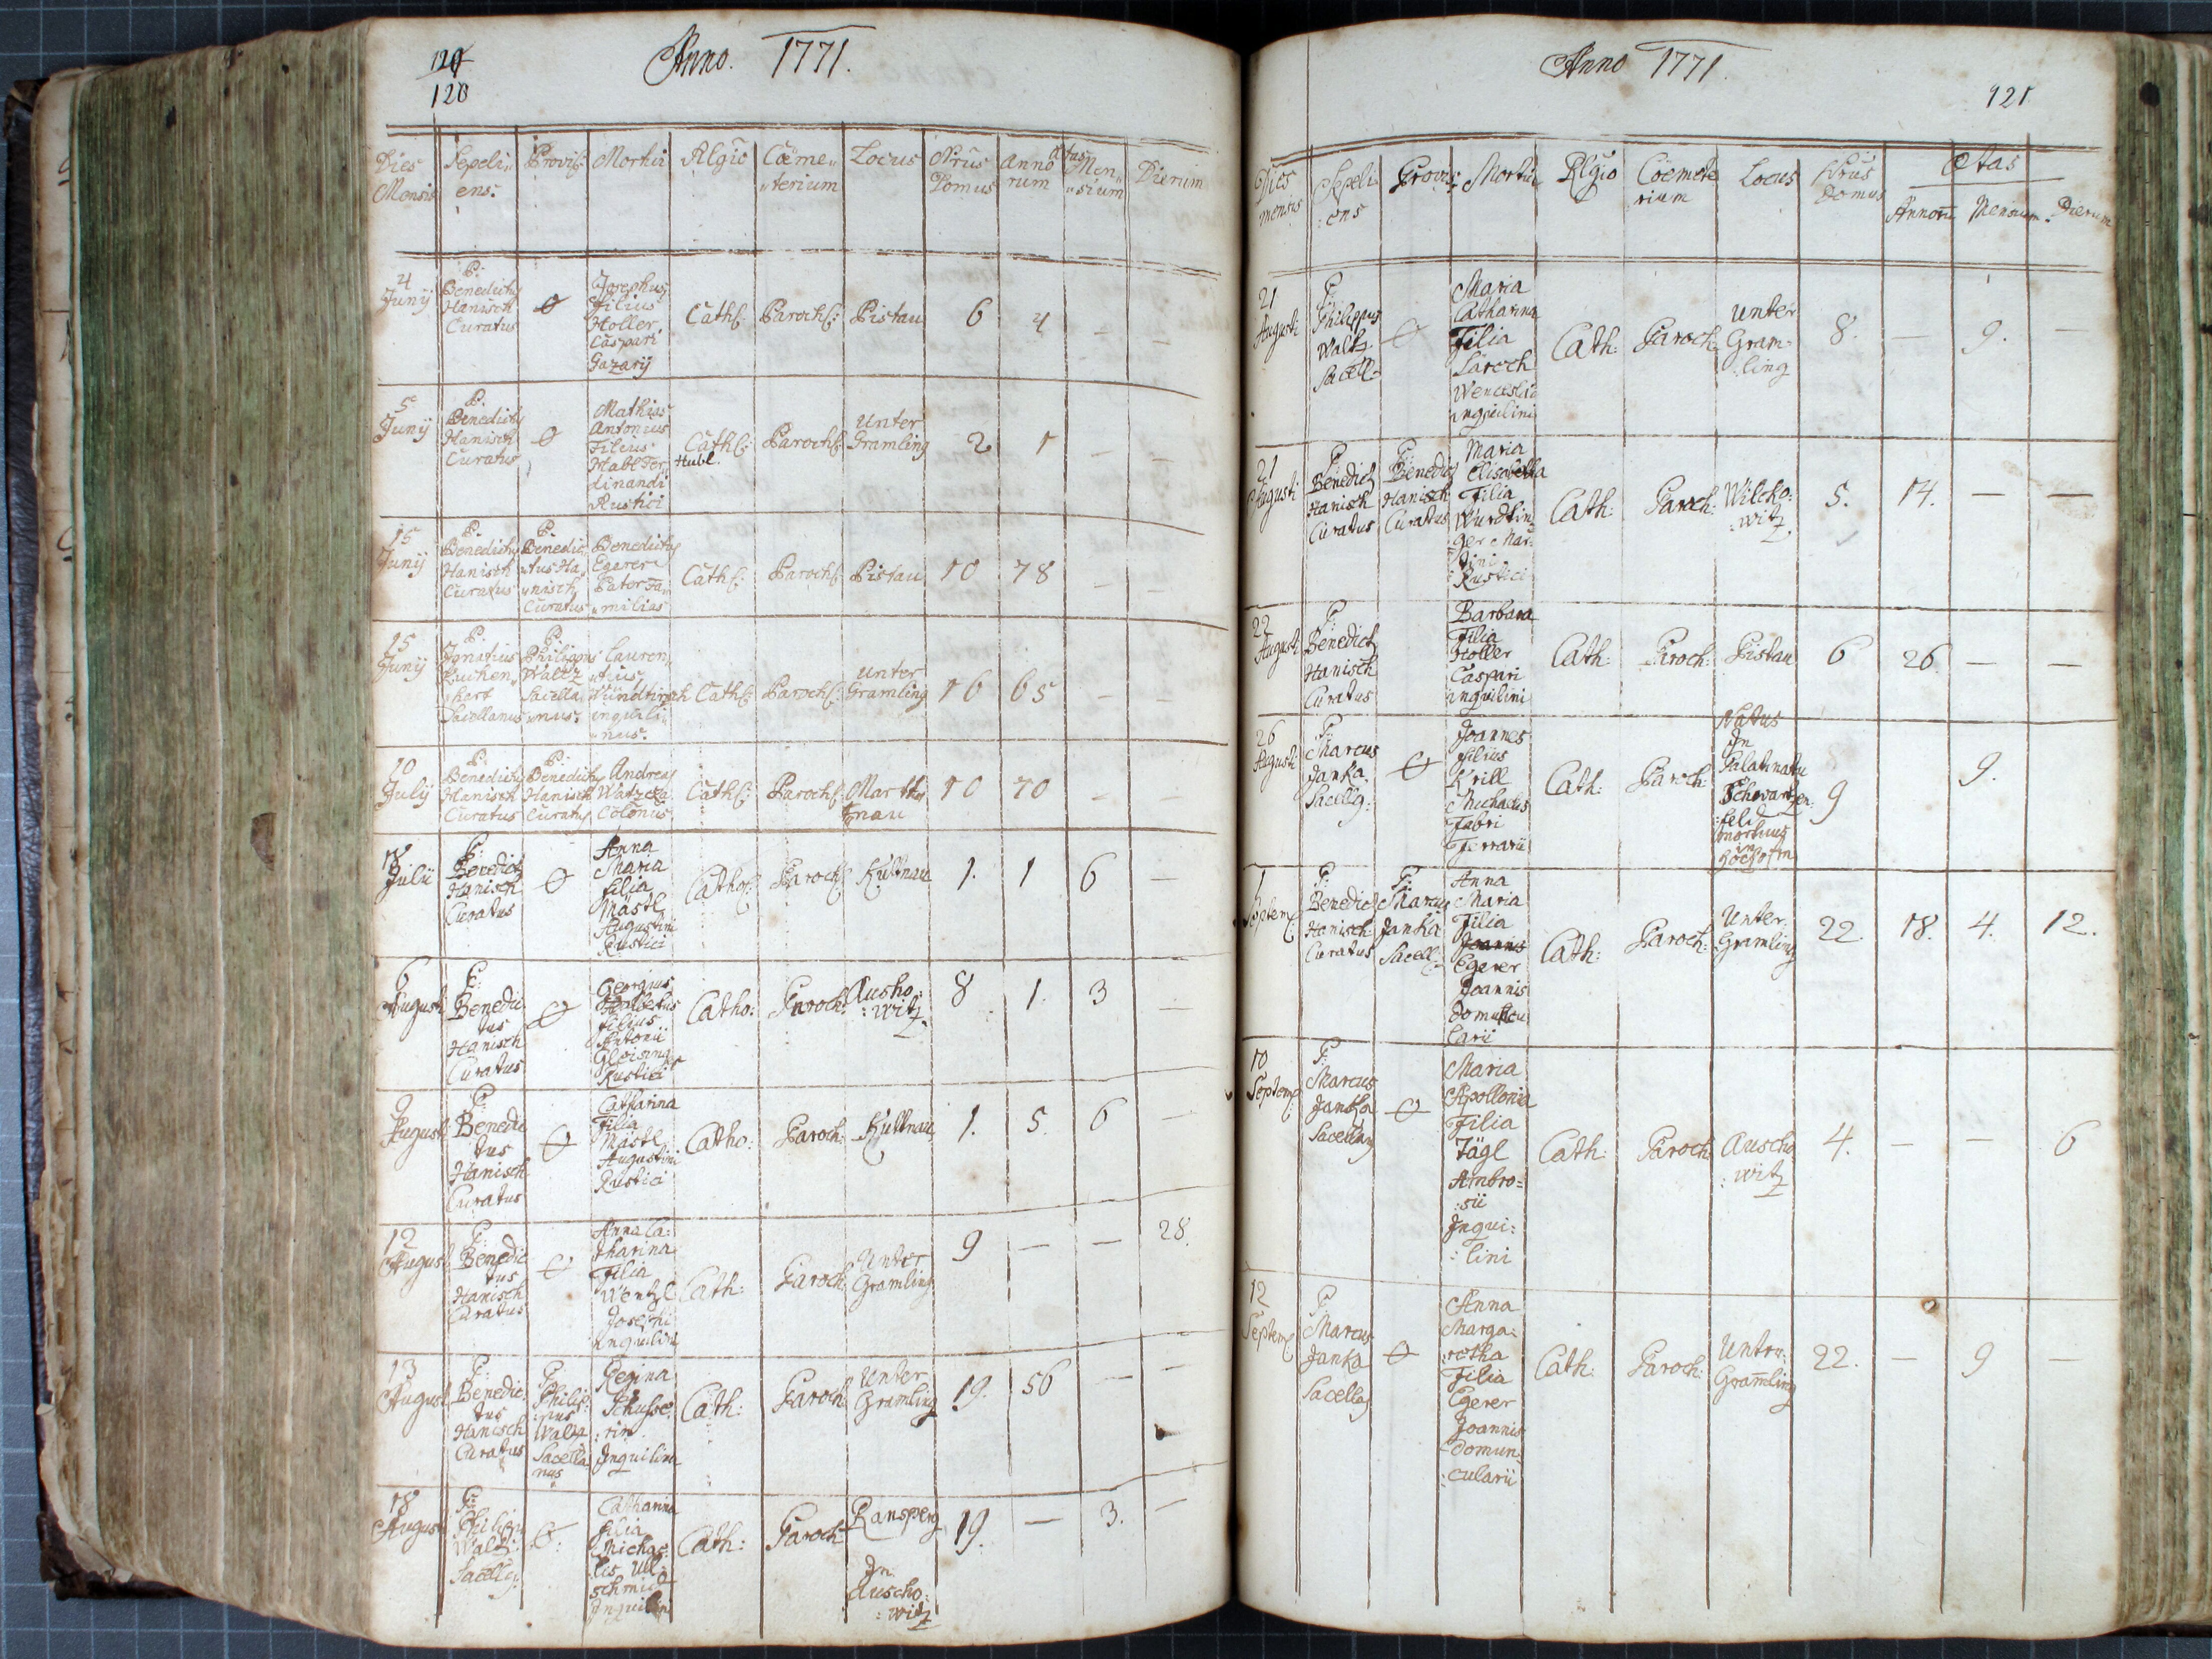 120
Anno. 1771.
Dies Mensis Sepeli,, ens: Provis: Mortui Rlgio Cöeme,, ,,terium Locus Nrus Domus Anno rum ætas Men,, ,,sium Dierum
4 Junij P. Benedictus Hanisch Curatus Ø Josephus Filius Holler Caspari Gazarij Cath: Paroch: Pistau 6 4 – –
5 Junij P. Benedictus Hanisch Curatus Ø Mathias Antonius Filius Habl Fer,, dinandi Rustici Hubl. Cath: Paroch: Unter Gramling 2 1 – –
15 Junij P. Benedictus Hanisch Curatus P. Benedic,, ,,tus Ha,, ,,nisch Curatus Benedictus Egerer Pater Fa,, ,,milias Cath: Paroch: Pistau 10 78 – –
15 Junij P. Ignatius ,,hert Sacellanus P. Philippus Waltz Sacella,, ,,nus Lauren,, ,,tius inquili,, ,,nus. Cath: Paroch: Unter Gramling 16 65 – –
10 Julij P. Benedictus Hanisch Curatus P. Benedictus Hanisch Curatus Andreas Watzcka Colonus Cath: Paroch: Marth nau 10 70 – –
18 Julii P. Benedict Hanisch Curatus Ø Anna Maria filia Mästl Augustini Rustici Cathol: Paroch: Kuttnau 1. 1 6 –
6 August P: Benedic tus Hanisch Curatus Ø Georgius filius Antonii Gleisinger Rustici Catho: Paroch: Ausho: :witz 8 1. 3 –
9 August P: Benedic tus Hanisch Curatus Ø Catharina Filia Mästl Augustini Rustici Catho: Paroch: Kuttnau 1. 5. 6 –
12 August P: Benedic tus Hanisch Curatus Ø Anna Ca: tharina Filia Wentzl Josephi Inquilini Cath: Paroch: Unter Gramling 9 – – 28.
13 August P: Benedic: tus Hanisch Curatus P. Philip: :pus Waltz Sacella: nus Regina Schuste: :rin Inquilina Cath: Paroch: Unter Gramling 19. 56 – –
18 August P: Philippus Waltz: Sacell: Ø: Catharina filia Michae: :lis Ull: schmid Inquilini Cath: Paroch: Ransperg In Auscho: :witz 19. – 3. –
Anno 1771.
121
Dies mensis Sepeli: :ens Provis: Mortui Rlgio Coemete rium Locus Nrus Domus Ætas Annoru Mensium. Dierum
21 Augusti P: Philippus Waltz Sacell: Ø Maria Catharina Filia Wenceslai inquilini Cath: Paroch: Unter Gram: :ling 8. – 9. –
21 Augusti P: Benedict Hanisch Curatus P: Benedic Hanisch Curatus Maria Elisabetha Filia Wurdtin: ger Mar: :tini Rustici Cath: Paroch: Wilcko: :witz 5. 14. – –
22 Augusti P: Benedict Hanisch Curatus Barbara Filia Holler Caspari inquilini Cath: Paroch: Pistau 6 26 – –
26 Augusti P: Marcus Janka Sacellg: Ø Joannes filius Krill Michaelis Fabri Ferrarii Cath: Paroch: Natus In Palatinatu Schwartzen: :feld mortuus in Hochofen 9 9.
1 Septem: P: Benedict Hanisch Curatus P: Marcus Janka Sacell: Anna Maria Filia Joannis Egerer Joannis domuncu larii Cath: Paroch: Unter Gramling 22. 18. 4. 12.
10 Septem: P: Marcus Janka Sacellanus Ø Maria Apollonia Filia Jägl Ambro: :sii Inqui: :lini Cath: Paroch: Auscho :witz 4. – – 6
12 Septem: P: Marcus Janka Sacella Ø Anna Marga: :retha Filia Egerer Joannis domun: :cularii Cath: Paroch: Untru: Gramling 22. – 9 –